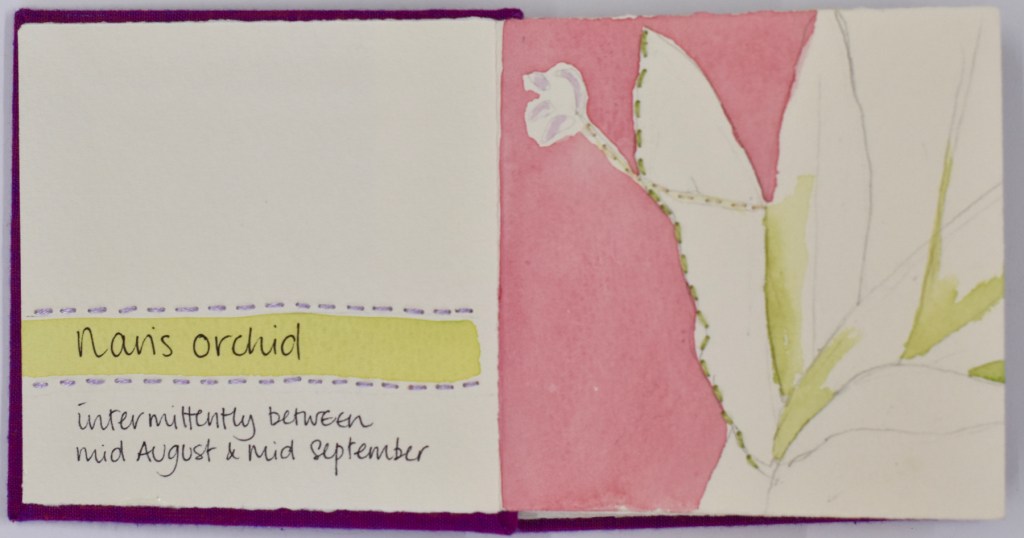 Nan's orchid
intermittently between
mid August & mid September